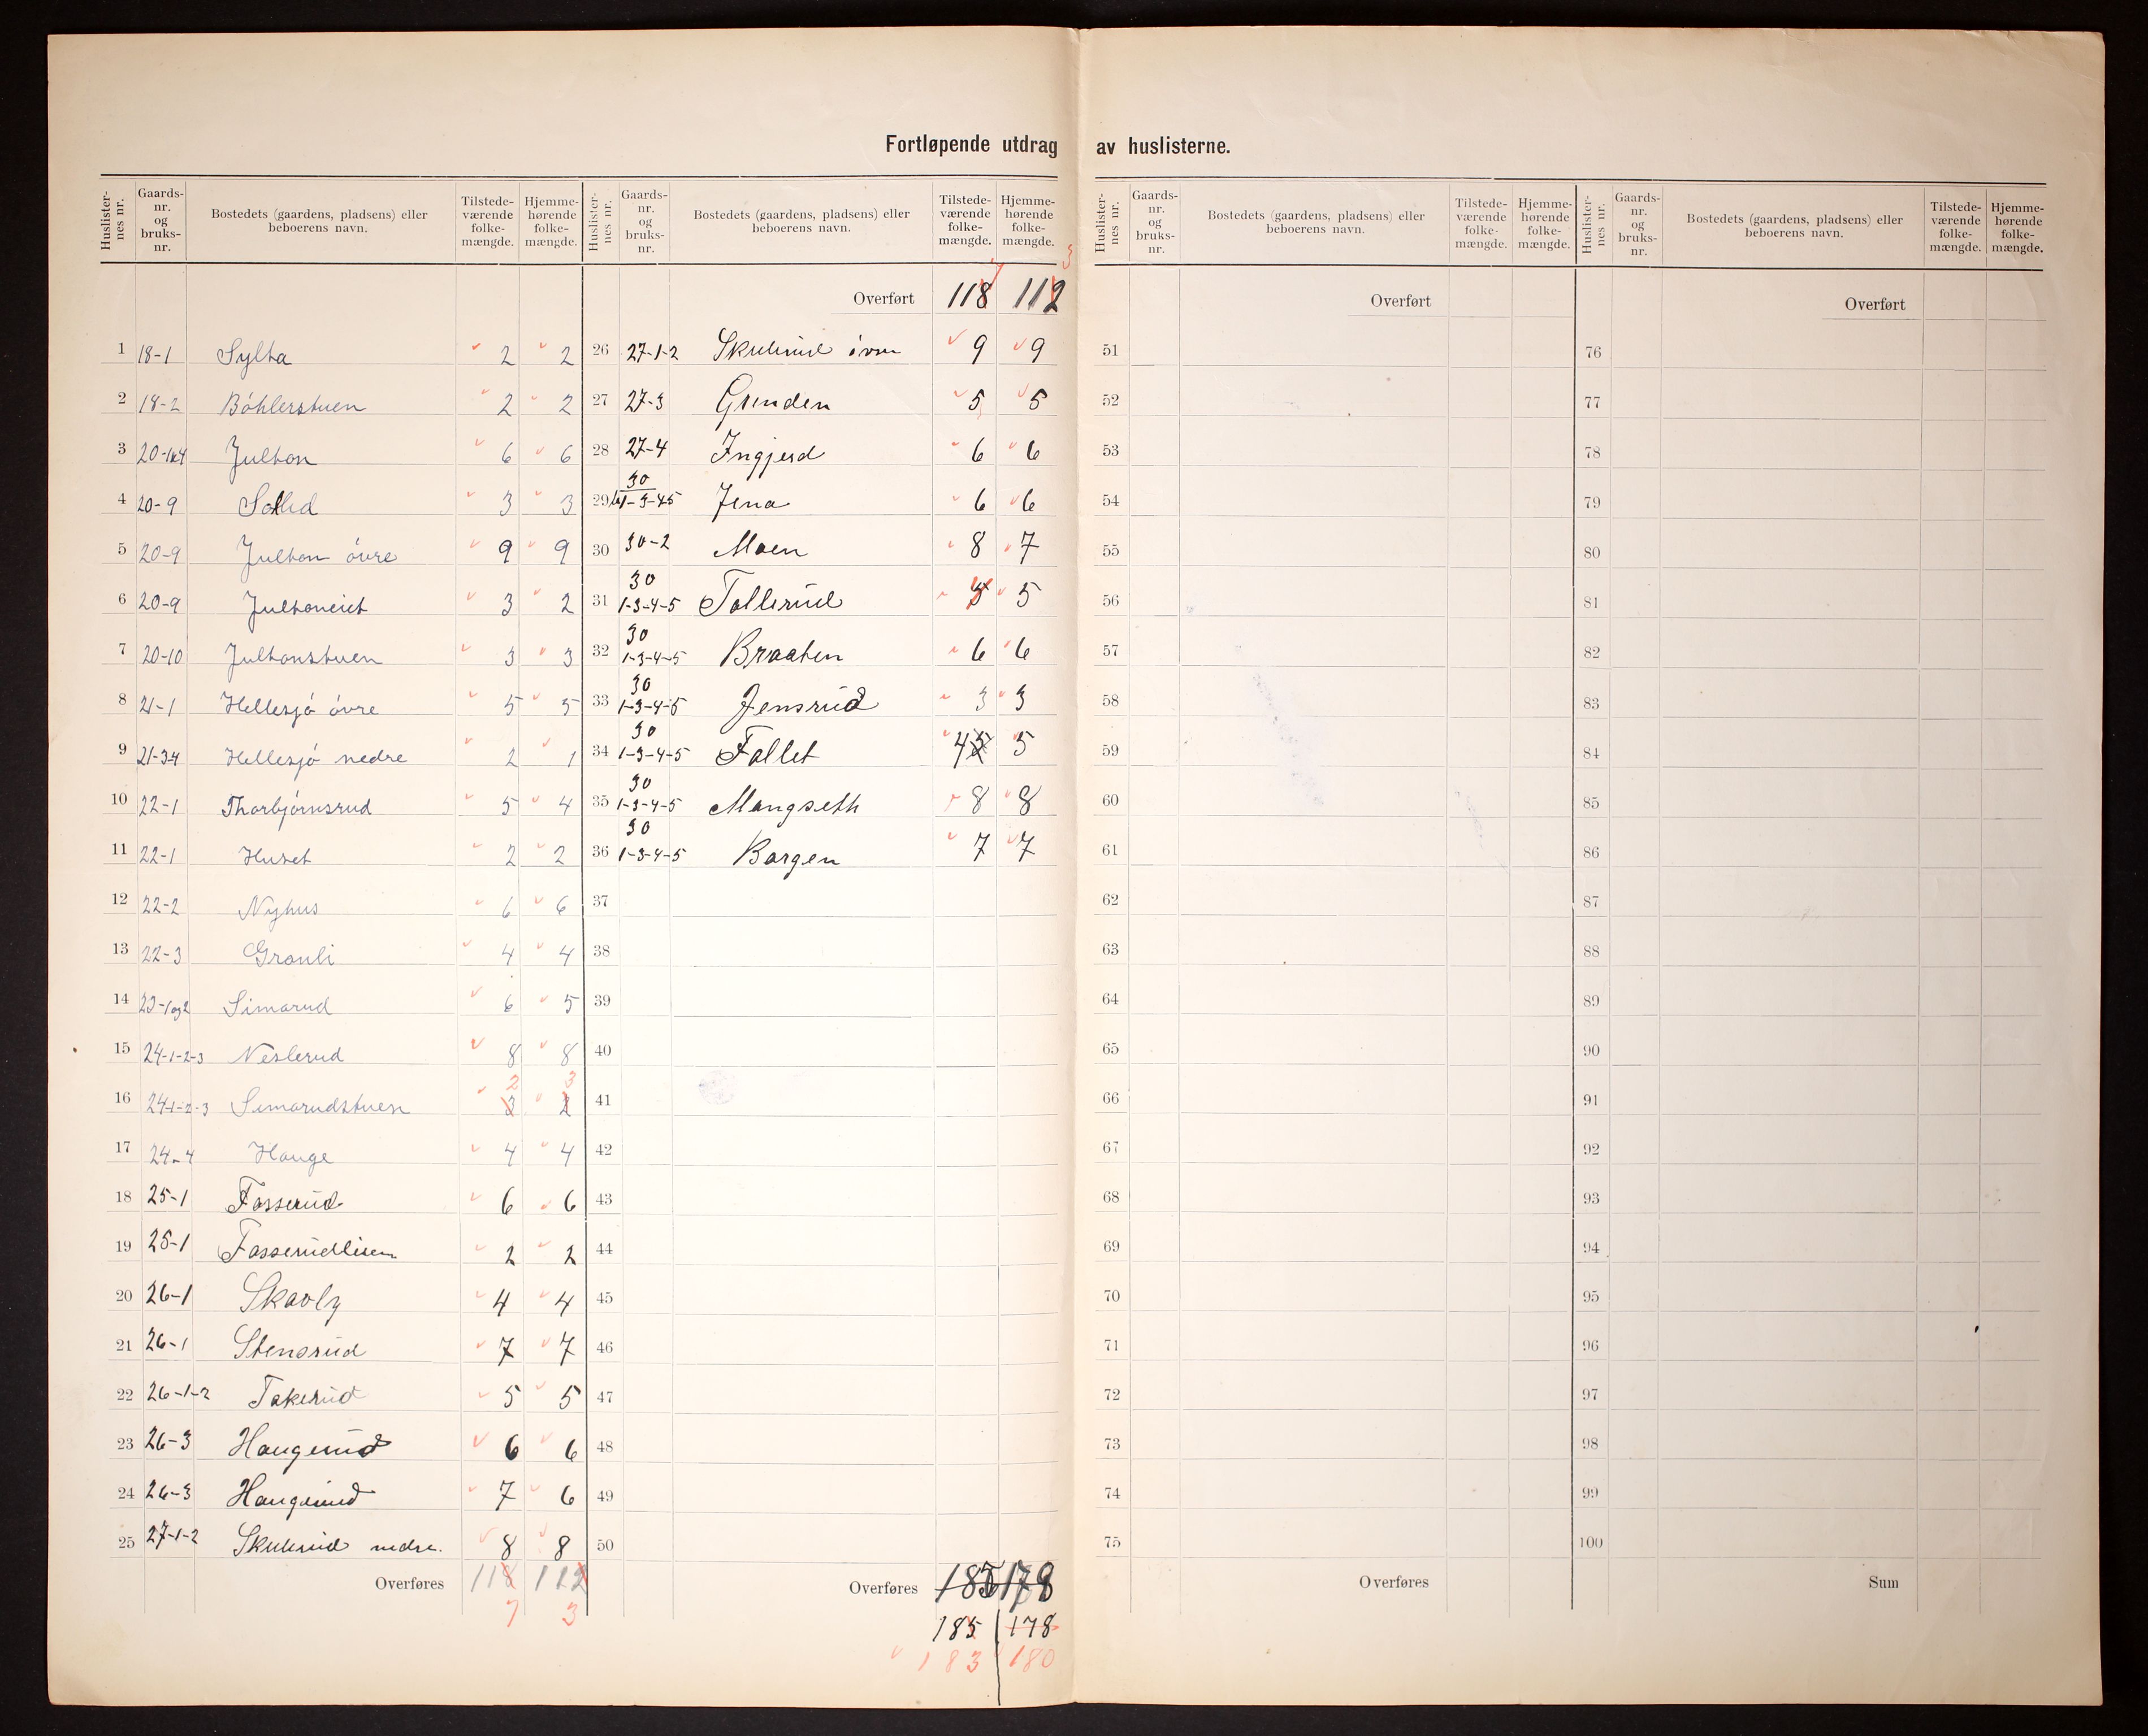 Fortløpende utdrag av huslisterne.
Huslisternes nr. Gaardsnr. og bruksnr. Bostedets (gaardens, pladsens) eller beboerens navn. Tilstedeværende folkemængde. Hjemmehørende folkemængde.
1 18-1 Sylta 2 2
2 18-2 Böhlerstuen 2 2
3 Julton 6 6
4 20-9 3 3
5 20-9 Julton övre 9 9
6 20-9 Jultoneiet 3 2
7 20-10 Jultonstuen 3 3
8 21-1 Hellesjö övre 5 5
9 21-3-4 Hellesjö nedre 2 1
10 22-1 Thorbjörnsrud 5 4
11 22-1 Huset 2 2
12 22-2 Nyhus 6 6
13 22-3 Granli 4 4
14 23-1og2 Simarud 6 5
15 24-1-2-3 Neslerud 8 8
16 24-1-2-3 Simarudstuen 2 3
17 24-4 Hauge 4 4
18 25-1 Fosserud 6 6
19 25-1 Fosserudlien 2 2
20 26-1 Skovly 4 4
21 26-1 Stensrud 7 7
22 26-1-2 Takerud 5 5
23 26-3 Haugerud 6 6
24 26-3 Haugerud 7 6
25 27-1-2 Skulerud nedre. 8 8
Overføres 118 112
7 3
Huslisternes nr. Gaardsnr. og bruksnr. Bostedets (gaardens, pladsens) eller beboerens navn. Tilstedeværende folkemængde. Hjemmehørende folkemængde.
7 3
Overført 118 112
26 27-1-2 Skulerud övre 9 9
27 27-3 Grinden 5 5
28 27-4 Ingjerd 6 6
29 30 1-3-4-5 Jena 6 6
30 30-2 Moen 8 7
31 30 1-3-4-5 Tollerud 5
32 30 1-3-4-5 Braaten 6 6
33 30 1-3-4-5 Jensrud 3 3
34 30 1-3-4-5 Fallet 4 5
35 30 1-3-4-5 Mangseth 8 8
36 30 1-3-4-5 Borgen 7 7
37
38
39
40
41
42
43
44
45
46
47
48
49
50
Overføres 185 178
185 178
183 180
Huslisternes nr. Gaardsnr. og bruksnr. Bostedets (gaardens, pladsens) eller beboerens navn. Tilstedeværende folkemængde. Hjemmehørende folkemængde.
Overført
51
52
53
54
55
56
57
58
59
60
61
62
63
64
65
66
67
68
69
70
71
72
73
74
75
Overføres
Huslisternes nr. Gaardsnr. og bruksnr. Bostedets (gaardens, pladsens) eller beboerens navn. Tilstedeværende folkemængde. Hjemmehørende folkemængde.
Overført
76
77
78
79
80
81
82
83
84
85
86
87
88
89
90
91
92
93
94
95
96
97
98
99
100
Sum